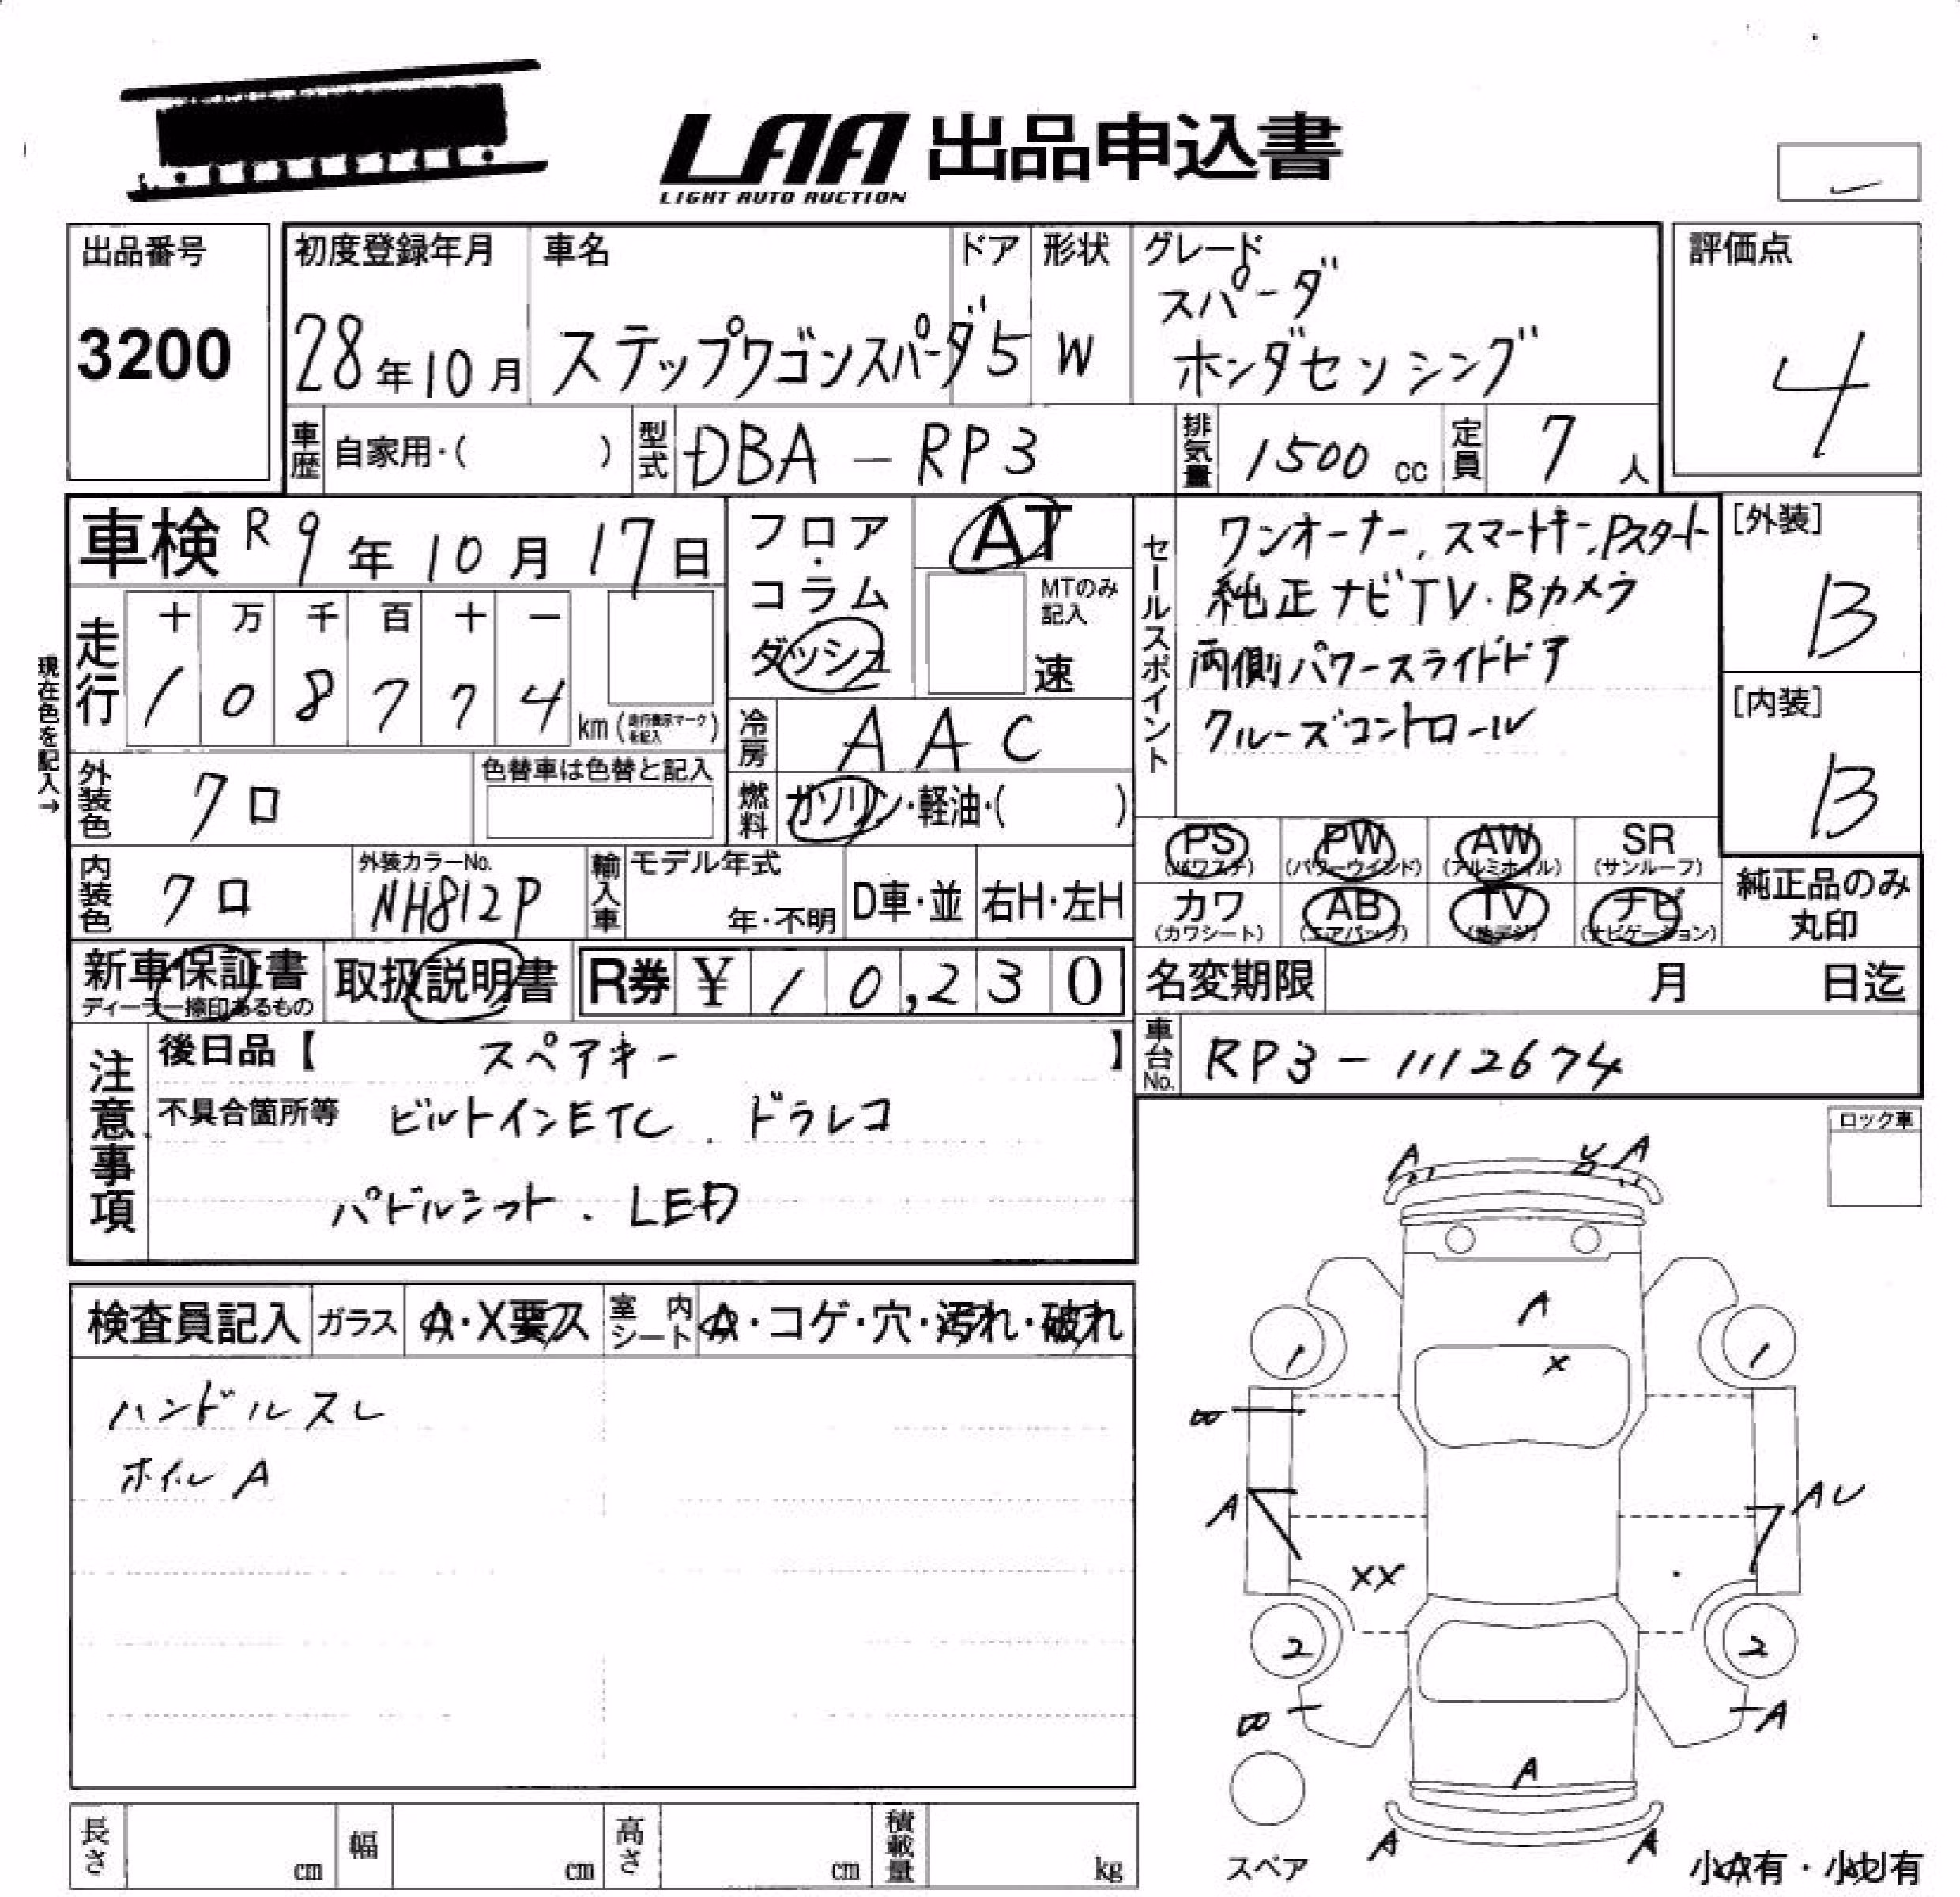 LAA 出品申込書
LIGHT AUTO AUCTION
出品番号
3200
初度登録年月
28年10月
車名
ステップワゴンスパーダ
ドア
5
形状
W
グレード
スパーダ
ホンダセンシング
評価点
4
車歴 自家用・( )
型式 DBA-RP3
排気量 1500 cc
定員 7 人
車検 R9年10月17日
フロア・コラム
ダッシュ
AT
MTのみ記入
速
セールスポイント
ワンオーナー、スマートキー、Pスタート
純正ナビTV・Bカメラ
両側パワースライドドア
クルーズコントロール
[外装]
B
[内装]
B
現在色を記入→
走行
十 万 千 百 十 一
1 0 8 7 7 4 km (走行表示マークを記入)
冷房 AAC
燃料 ガソリン・軽油・( )
外装色 クロ
色替車は色替と記入
内装色 クロ
外装カラーNo.
NH812P
輸入車 モデル年式
年・不明
D車・並 右H・左H
PS PW AW SR
(パワステ) (パワーウインド) (アルミホイル) (サンルーフ)
カワ AB TV ナビ
(カワシート) (エアバック) (地デジ) (ナビゲーション)
純正品のみ
丸印
新車保証書
ディーラー捺印あるもの
取扱説明書
R券 ¥ 10,230
名変期限 月 日迄
車台No. RP3-1112674
注意事項
後日品【 スペアキー 】
不具合箇所等 ビルトインETC . ドラレコ
パドルシフト . LED
ロック車
検査員記入 ガラス A・X要ス 室内シート A・コゲ・穴・汚れ・破れ
ハンドルスレ
ホイルA
A A
A
X
1 1
A AU
XX
2 2
A
A
A A
スペア
小A有・小U有
長さ cm 幅 cm 高さ cm 積載量 kg